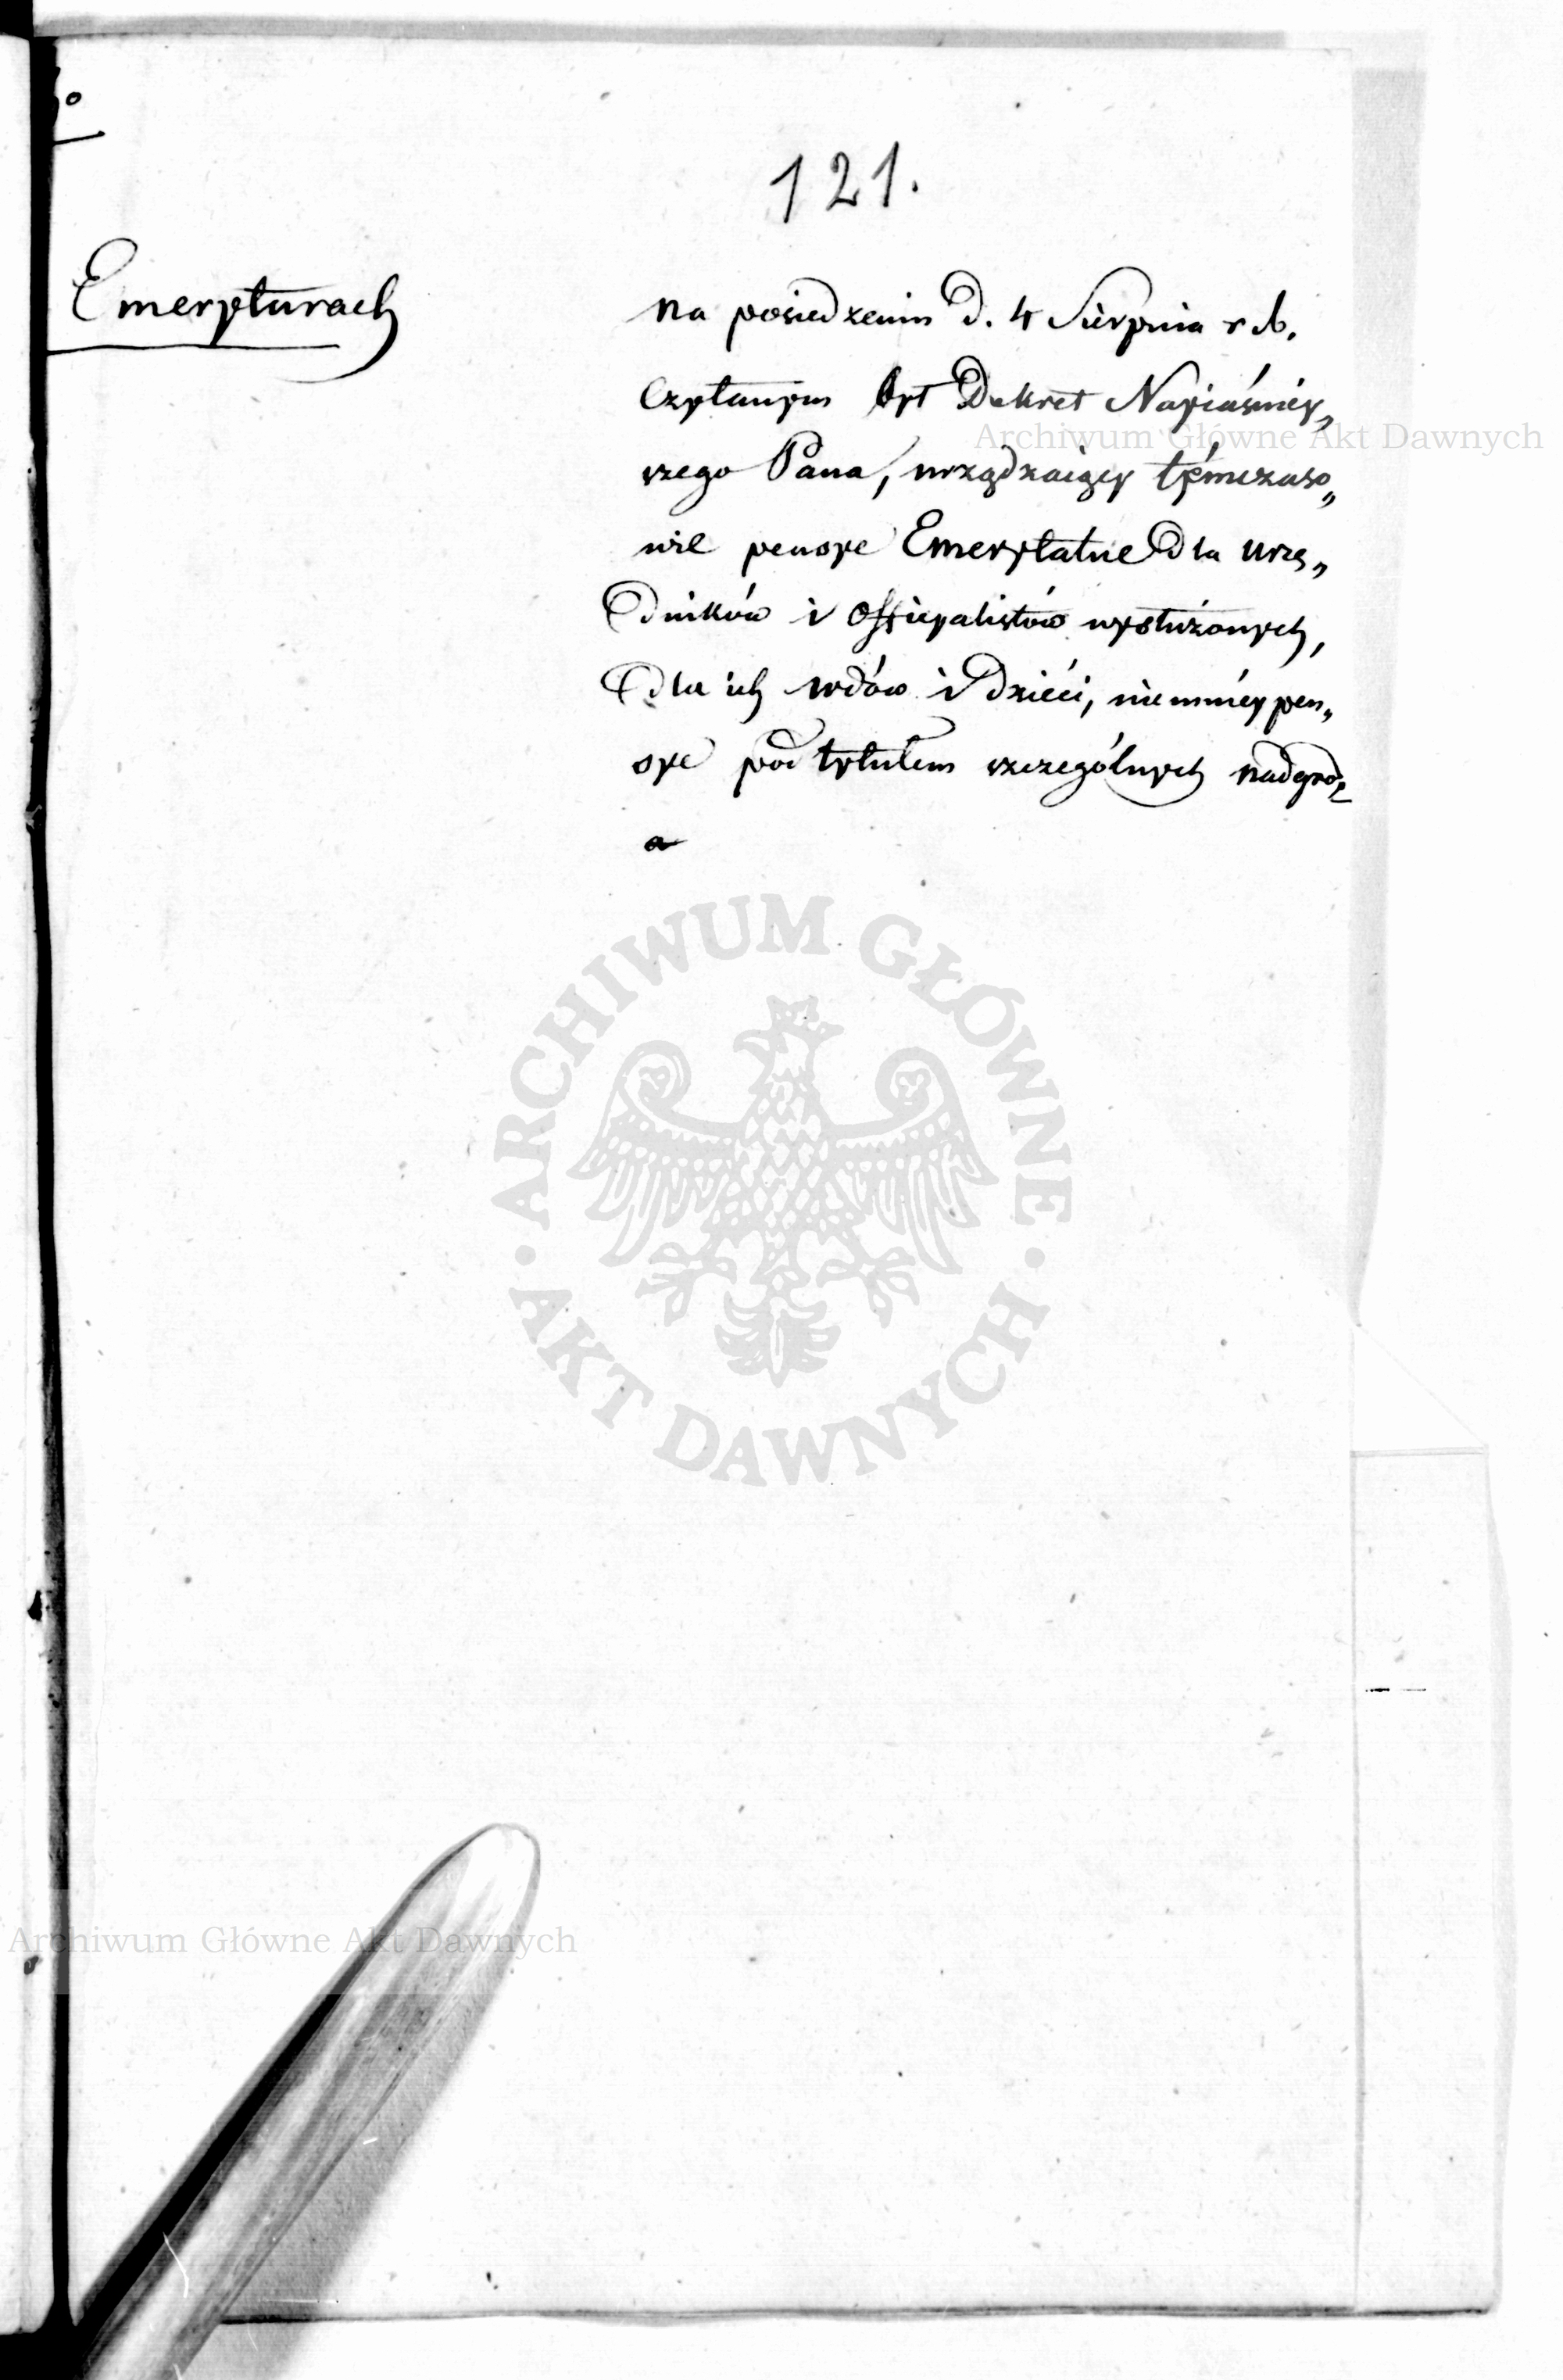 121.
Emeryturach
na posiedzeniu d. 4 Sierpnia r. b.
Czytanym był Dekret Nayiaśniéy„
szego Pana, urządzaiący tymczaso„
wie pensye Emerytalne dla urzę„
dników i officyalistów wysłużonych,
dla ich wdów i dzieci, niemniéy pen„
sye pod tytułem szczególnych nadgró„
Archiwum Główne Akt Dawnych
ARCHIWUM GŁÓWNE
AKT DAWNYCH
Archiwum Główne Akt Dawnych